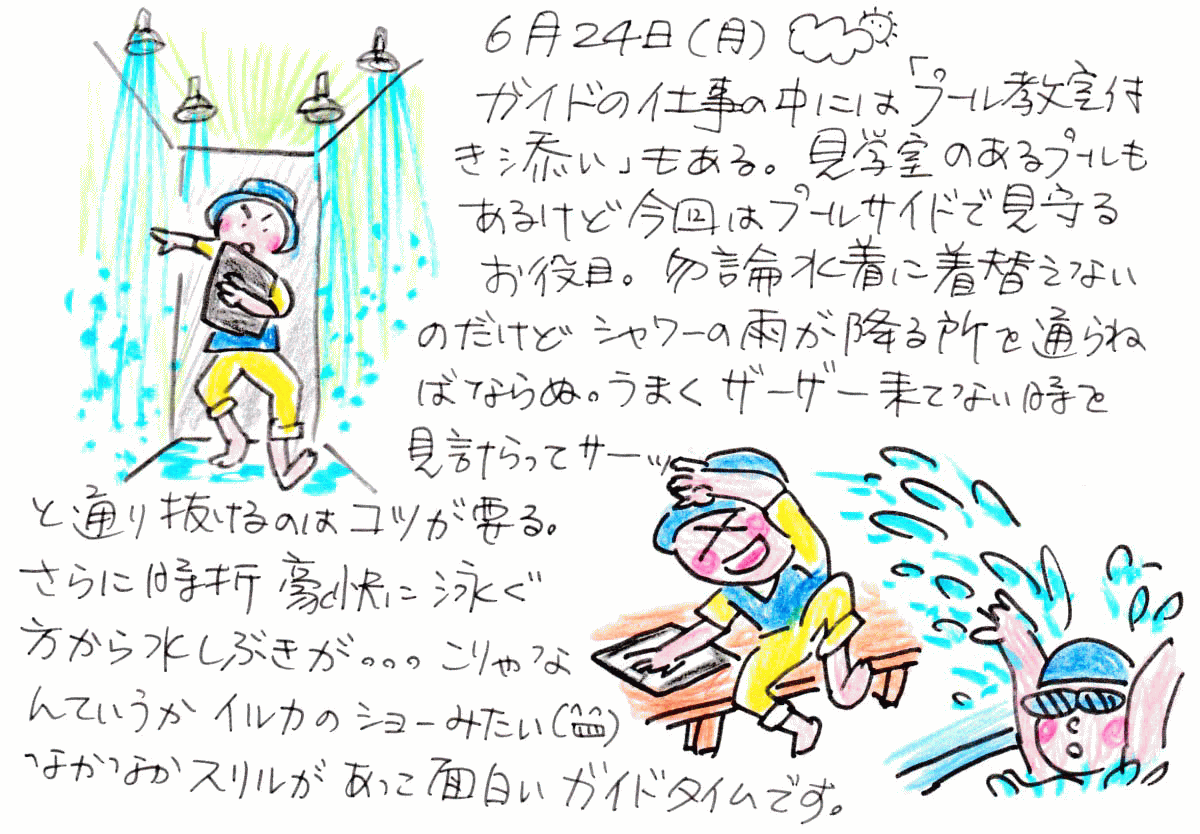 6月24日(月)
ガイドの仕事の中には「プール教室付
き添い」もある。見学室のあるプールも
あるけど今回はプールサイドで見守る
お役目。勿論水着に着替えない
のだけどシャワーの雨が降る所を通らね
ばならぬ。うまくザーザー来てない時を
見計らってサーッ
と通り抜けるのはコツが要る。
さらに時折豪快に泳ぐ
方から水しぶきが。。。こりゃな
んていうかイルカのショーみたい(^^)
なかなかスリルがあって面白いガイドタイムです。